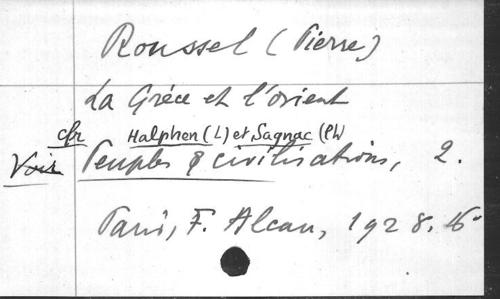 Roussel (Pierre)
La Grèce et l'orient
cfr Halphen (L) et Sagnac (Ph)
Voir Peuples & civilisations, 2.
Paris, F. Alcan, 1928. 16°